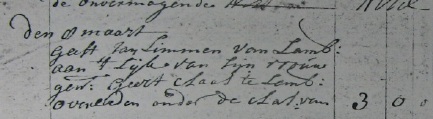 de onvermogende
den 8 maart
gaft Jan Simmen van Lamb:
aan 't Lijk van sijn vrouw
gen: Geert Claas te Lamb:
overleden onder de clas: van 3 0 0